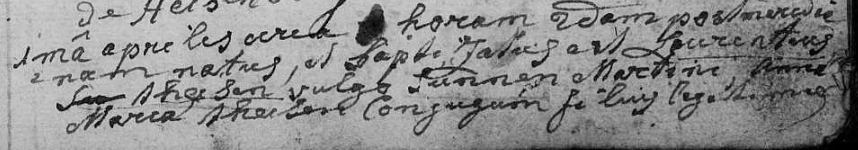 de
1mâ aprilis circa horam 2dam postmeridia
nam natus, et baptizatus est Laurentius
Theisen vulgo Sünnen Martini, Anna
Maria Theisen Conjugum filius legitimus